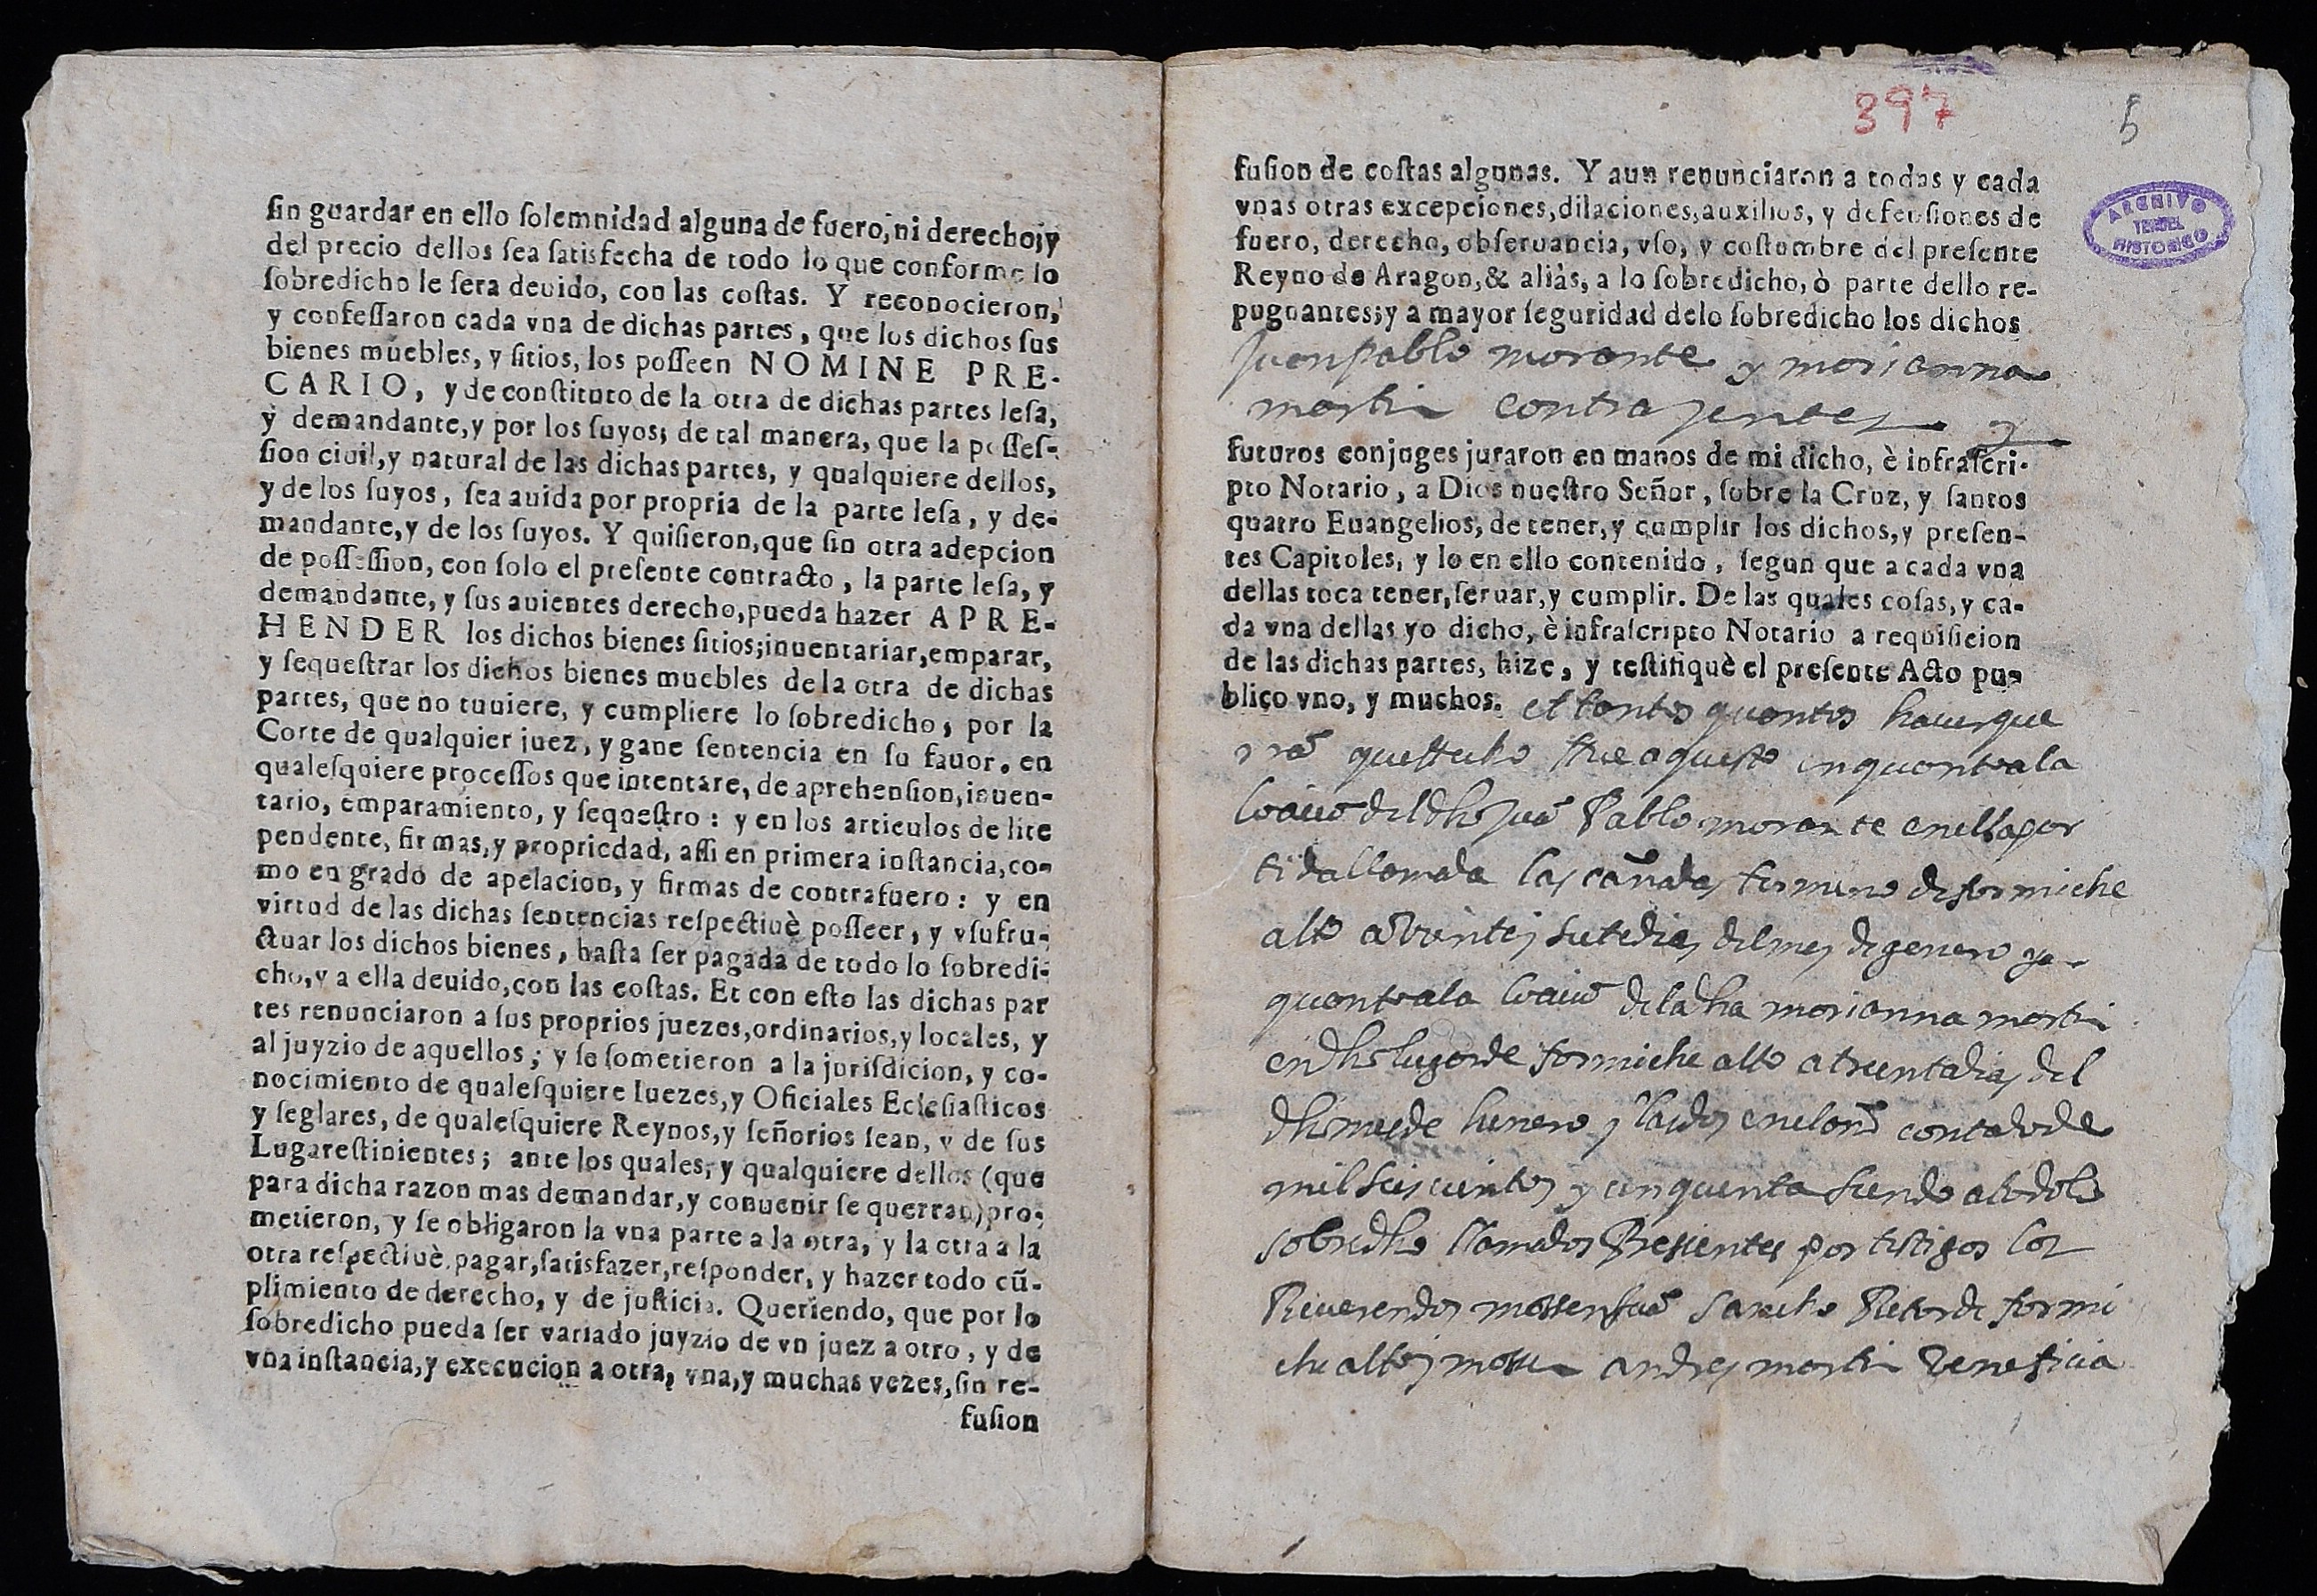 sin guardar en ello solemnidad alguna de fuero, ni derecho; y
del precio dellos sea satisfecha de todo lo que conforme lo
sobredicho le sera deuido, con las costas. Y reconocieron,
y confessaron cada vna de dichas partes, que los dichos sus
bienes muebles, y sitios, los posseen NOMINE PRE-
CARIO, y de constituto de la otra de dichas partes lesa,
y demandante, y por los suyos; de tal manera, que la posses-
sion ciuil, y natural de las dichas partes, y qualquiere dellos,
y de los suyos, sea auida por propria de la parte lesa, y de-
mandante, y de los suyos. Y quisieron, que sin otra adepcion
de possession, con solo el presente contracto, la parte lesa, y
demandante, y sus auientes derecho, pueda hazer APRE-
HENDER los dichos bienes sitios; inuentariar, emparar,
y sequestrar los dichos bienes muebles de la otra de dichas
partes, que no tuuiere, y cumpliere lo sobredicho, por la
Corte de qualquier juez, y gane sentencia en su fauor, en
qualesquiere processos que intentare, de aprehension, inuen-
tario, emparamiento, y sequestro: y en los articulos de lite
pendente, firmas, y propriedad, assi en primera instancia, co-
mo en grado de apelacion, y firmas de contrafuero: y en
virtud de las dichas sentencias respectiuè posseer, y vsufru-
ctuar los dichos bienes, hasta ser pagada de todo lo sobredi-
cho, y a ella deuido, con las costas. Et con esto las dichas par
tes renunciaron a sus proprios juezes, ordinarios, y locales, y
al juyzio de aquellos; y se sometieron a la jurisdicion, y co-
nocimiento de qualesquiere Iuezes, y Oficiales Eclesiasticos
y seglares, de qualesquiere Reynos, y señorios sean, y de sus
Lugarestinientes; ante los quales, y qualquiere dellos (que
para dicha razon mas demandar, y conuenir se querran) pro-
metieron, y se obligaron la vna parte a la otra, y la otra a la
otra respectiuè, pagar, satisfazer, responder, y hazer todo cũ-
plimiento de derecho, y de justicia. Queriendo, que por lo
sobredicho pueda ser variado juyzio de vn juez a otro, y de
vna instancia, y execucion a otra, vna, y muchas vezes, sin re-
fusion
397
5
ARCHIVO
TERUEL
HISTORICO
fusion de costas algunas. Y aun renunciaron a todas y cada
vnas otras excepciones, dilaciones, auxilios, y defensiones de
fuero, derecho, obseruancia, vso, y costumbre del presente
Reyno de Aragon, & aliàs, a lo sobredicho, ò parte dello re-
pugnantes; y a mayor seguridad de lo sobredicho los dichos
Juan pablo morante y marianna
martin contrayentes
futuros conjuges juraron en manos de mi dicho, è infrascri-
pto Notario, a Dios nuestro Señor, sobre la Cruz, y santos
quatro Euangelios, de tener, y cumplir los dichos, y presen-
tes Capitoles, y lo en ello contenido, segun que a cada vna
dellas toca tener, seruar, y cumplir. De las quales cosas, y ca-
da vna dellas yo dicho, è infrascripto Notario a requisicion
de las dichas partes, hize, y testifiquè el presente Acto pu-
blico vno, y muchos. et tantos quantos hauer que
rran fue aquesto en quanto a la
del dho Juã Pablo morante en la par
tida llamada las cañadas termino de formiche
alto a veinte y siete dias del mes de genero y a
quanto a la de la dha marianna martin
en dho lugar de formiche alto a trenta dias del
dho mes de henero y en el año contado de
mil seis cientos y cinquenta siendo a todo lo
sobredho llamados Presientes por testigos los
Reuerendos mossen Juã Sancho Retor de formi
che alto y mossen andres martin Beneficia